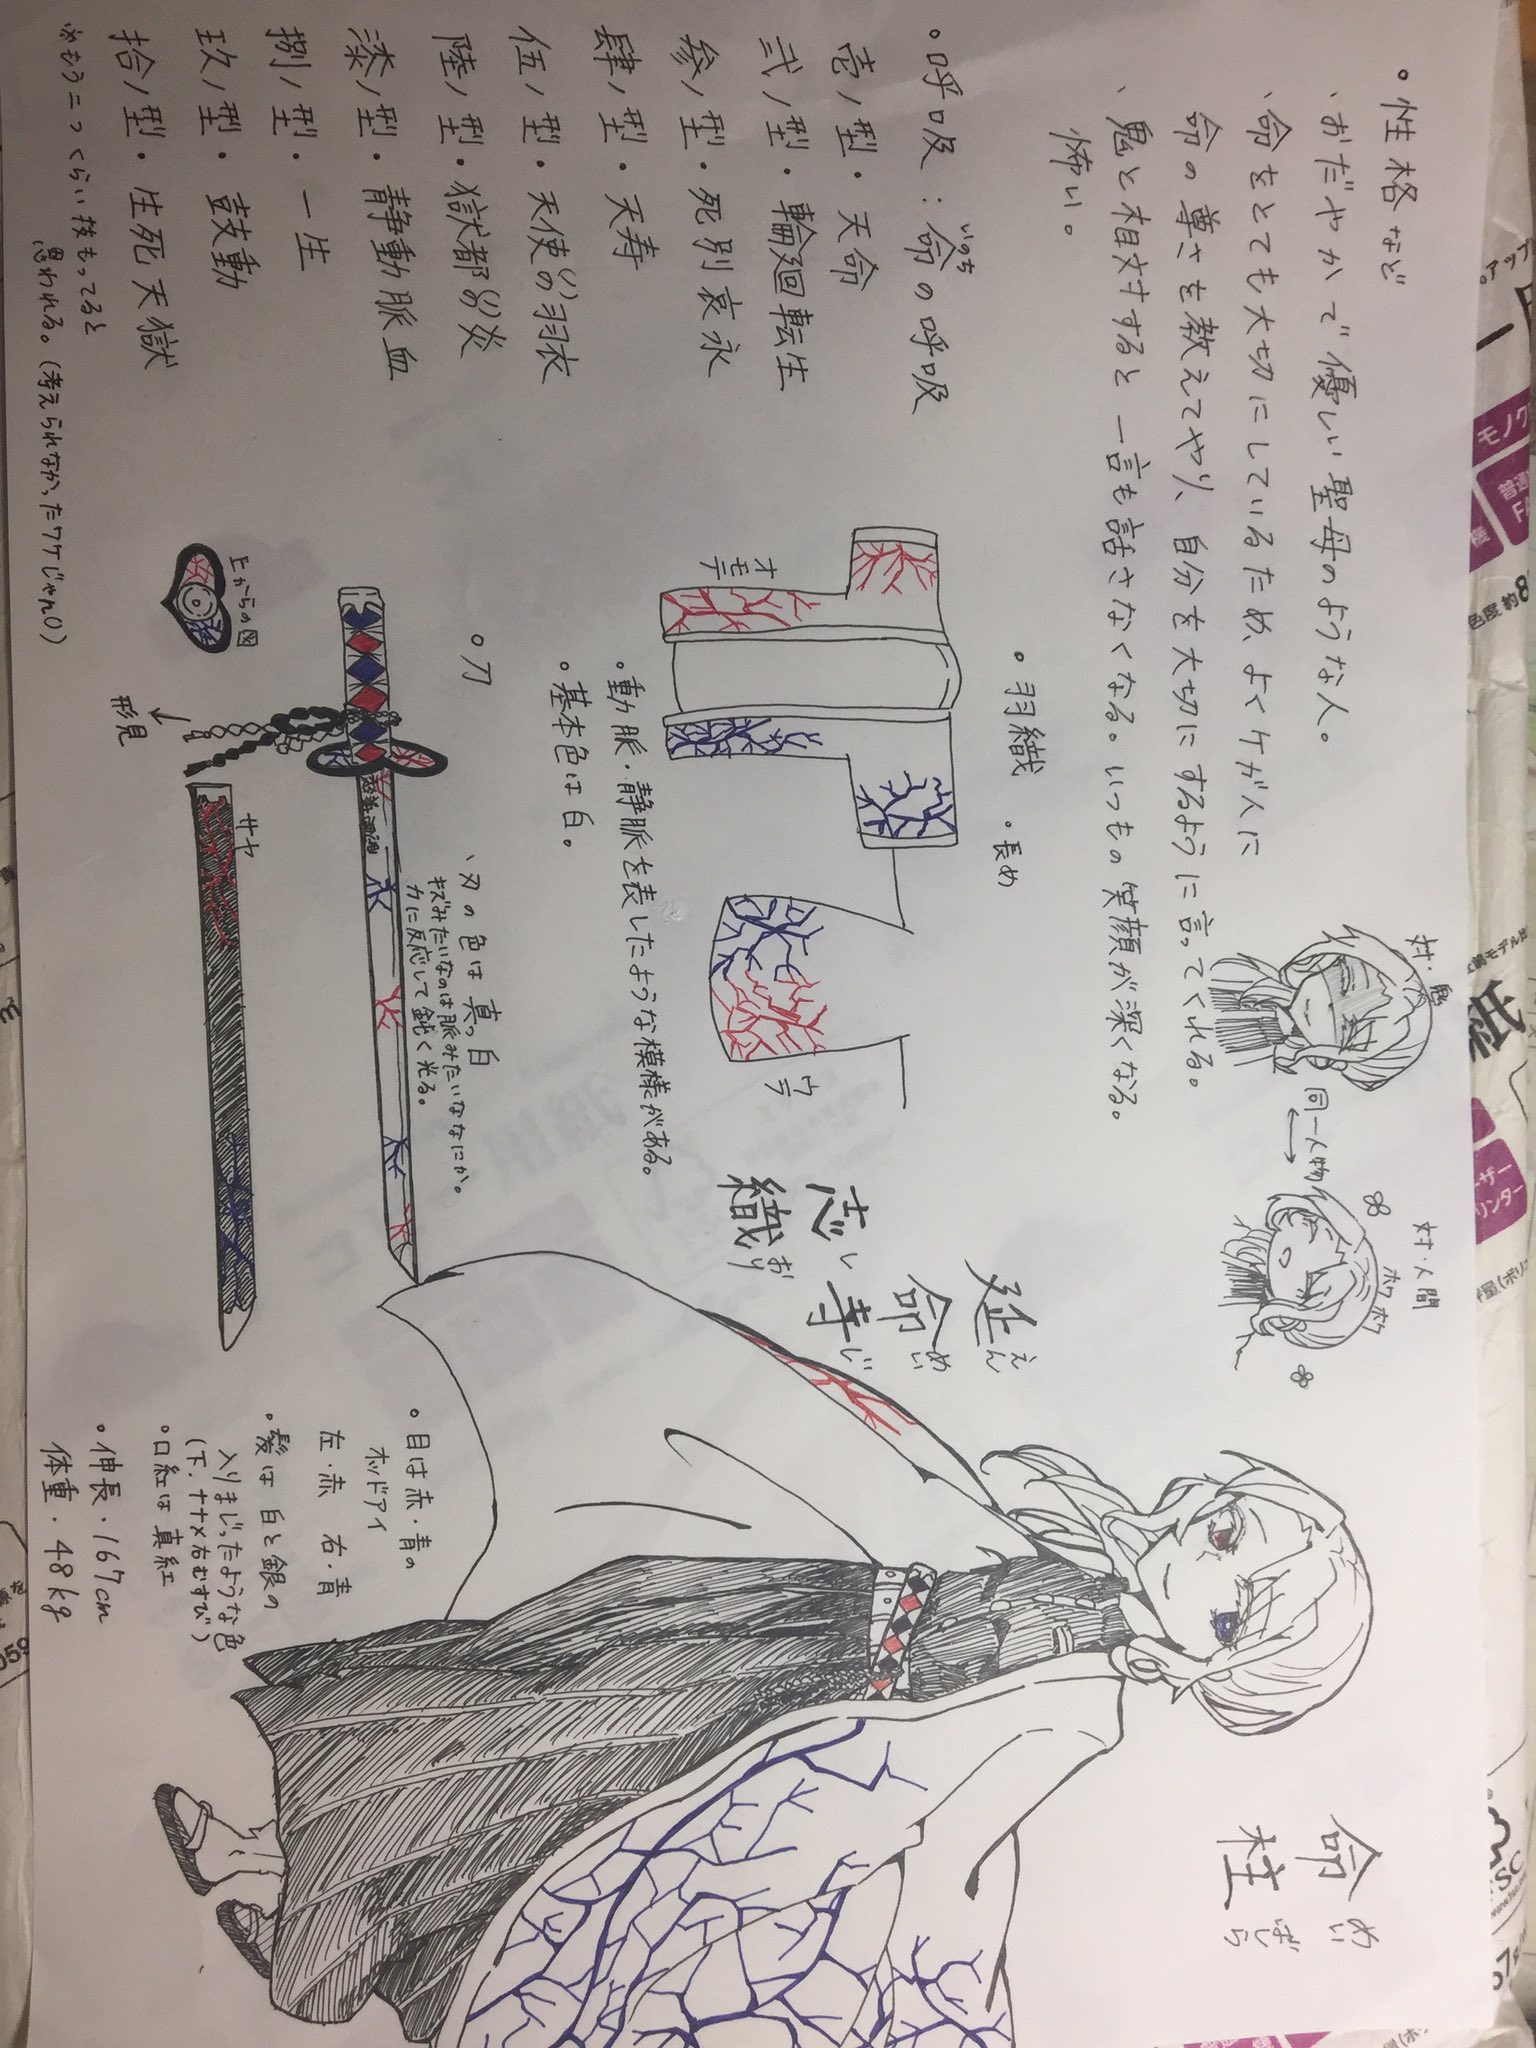 命柱
めいばしら
対・鬼
同一人物
対・人間
ホワホワ
延命寺
えんめいじ
志織
しおり
・性格など
、おだやかで優しい聖母のような人。
、命をとても大切にしているため、よくケガ人に
命の尊さを教えてやり、自分を大切にするように言ってくれる。
、鬼と相対すると一言も話さなくなる。いつもの笑顔が深くなる。
怖い。
・呼吸:命の呼吸
いのち
壱ノ型・天命
弐ノ型・輪廻転生
参ノ型・死別哀永
肆ノ型・天寿
伍ノ型・天使の(ノ)羽衣
陸ノ型・獄都の(ノ)炎
漆ノ型・静動脈血
捌ノ型・一生
玖ノ型・鼓動
拾ノ型・生死天獄
※もう二つくらい技もってると
思われる。(考えられなかったワケじゃん()
・羽織
・長め
オモテ
ウラ
・動脈・静脈を表したような模様がある。
・基本色は白。
・刀
、刃の色は真っ白
キズみたいなのは脈みたいななにか。
力に反応して鈍く光る。
上からの図
形見
サヤ
・目は赤・青の
オッドアイ
左・赤 右・青
・髪は白と銀の
入りまじったような色
(下、ナナメ右むすび)
・口紅は真紅
・伸長・167cm
体重・48kg
モノク
紙